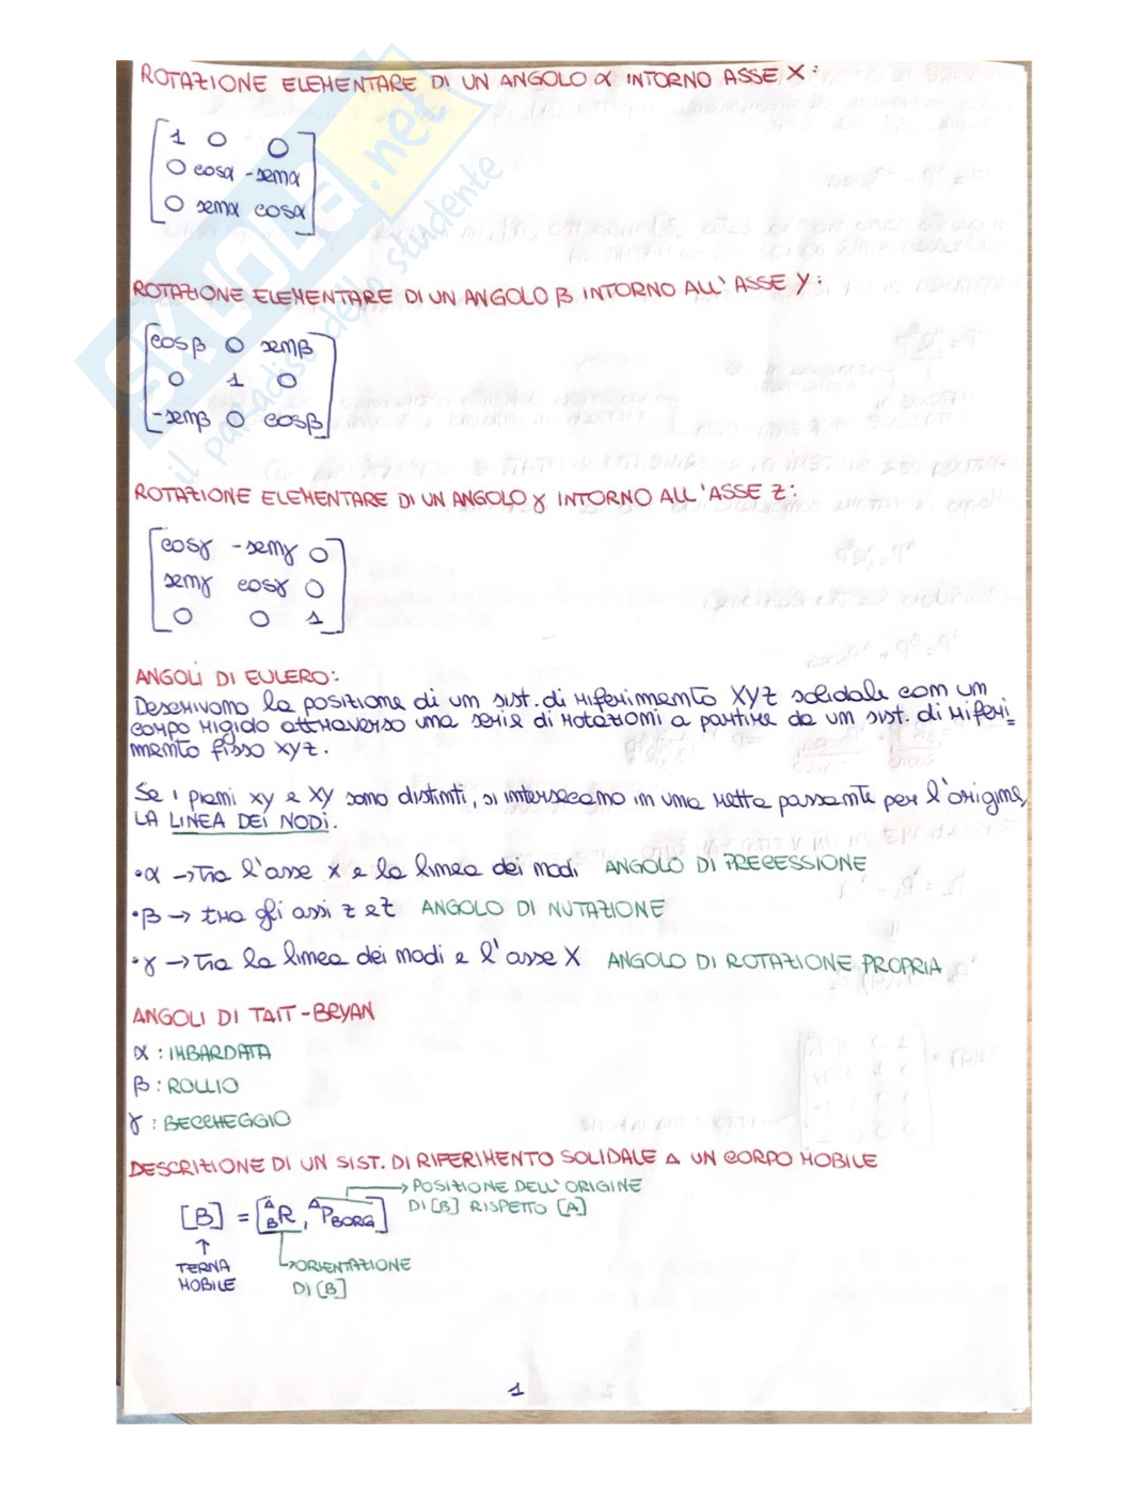 ROTAZIONE ELEMENTARE DI UN ANGOLO α INTORNO ASSE X:
1 0 0
0 cosα -senα
0 senα cosα
ROTAZIONE ELEMENTARE DI UN ANGOLO β INTORNO ALL'ASSE Y:
cosβ 0 senβ
0 1 0
-senβ 0 cosβ
ROTAZIONE ELEMENTARE DI UN ANGOLO γ INTORNO ALL'ASSE Z:
cosγ -senγ 0
senγ cosγ 0
0 0 1
ANGOLI DI EULERO:
Descrivono la posizione di un sist. di riferimento XYZ solidale con un
corpo rigido attraverso una serie di rotazioni a partire da un sist. di riferi=
mento fisso xyz.
Se i piani xy e XY sono distinti, si intersecano in una retta passante per l'origine,
LA LINEA DEI NODI.
•α → tra l'asse x e la linea dei nodi ANGOLO DI PRECESSIONE
•β → tra gli assi z e Z ANGOLO DI NUTAZIONE
•γ → tra la linea dei nodi e l'asse X ANGOLO DI ROTAZIONE PROPRIA
ANGOLI DI TAIT-BRYAN
α: IMBARDATA
β: ROLLIO
γ: BECCHEGGIO
DESCRIZIONE DI UN SIST. DI RIFERIMENTO SOLIDALE A UN CORPO MOBILE
→ POSIZIONE DELL'ORIGINE
DI [B] RISPETTO [A]
[B] = [ᴬ_BR, ᴬP_BORG]
↑
TERNA
MOBILE
→ ORIENTAZIONE
DI [B]
1
SKUOLA.net
il paradiso dello studente